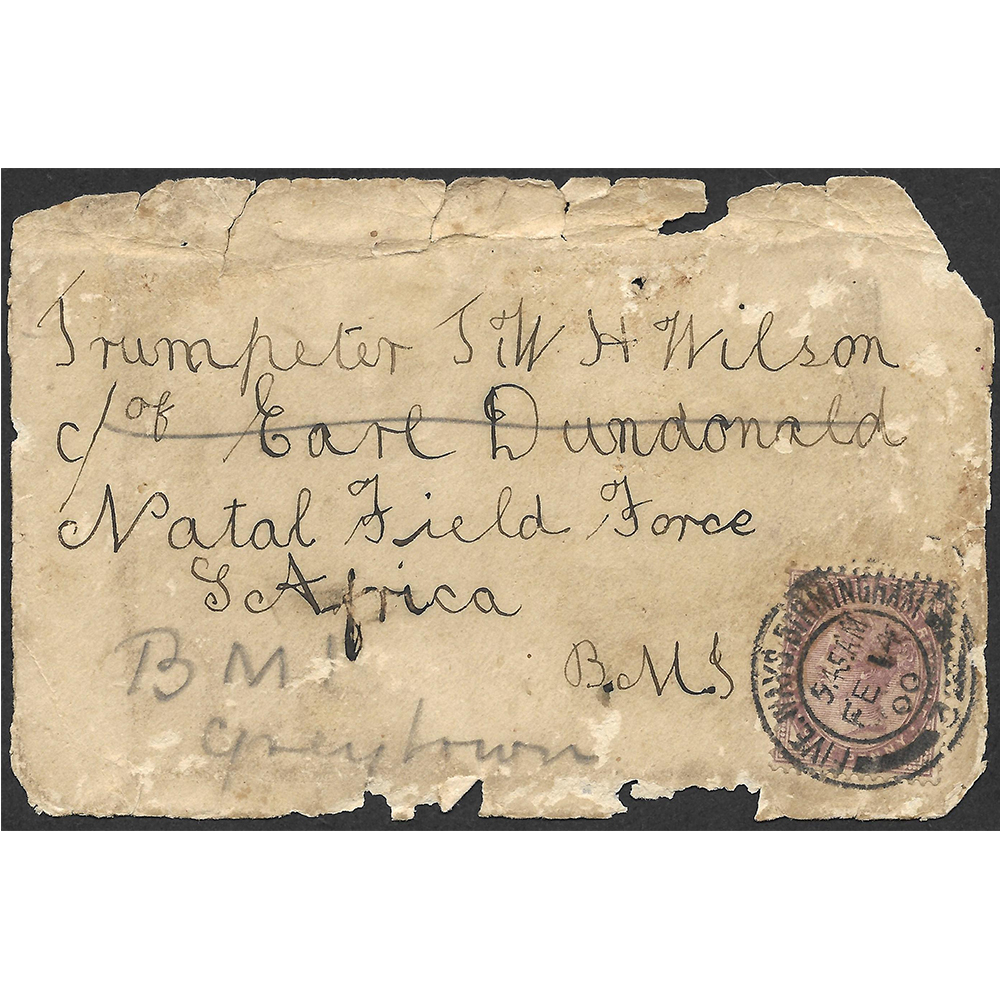 Trumpeter T.W. H Wilson
c/of Earl Dundonald
Natal Field Force
S Africa
B.M.I
B M I
Greytown
FIVE WAYS BIRMINGHAM
FE 14
00